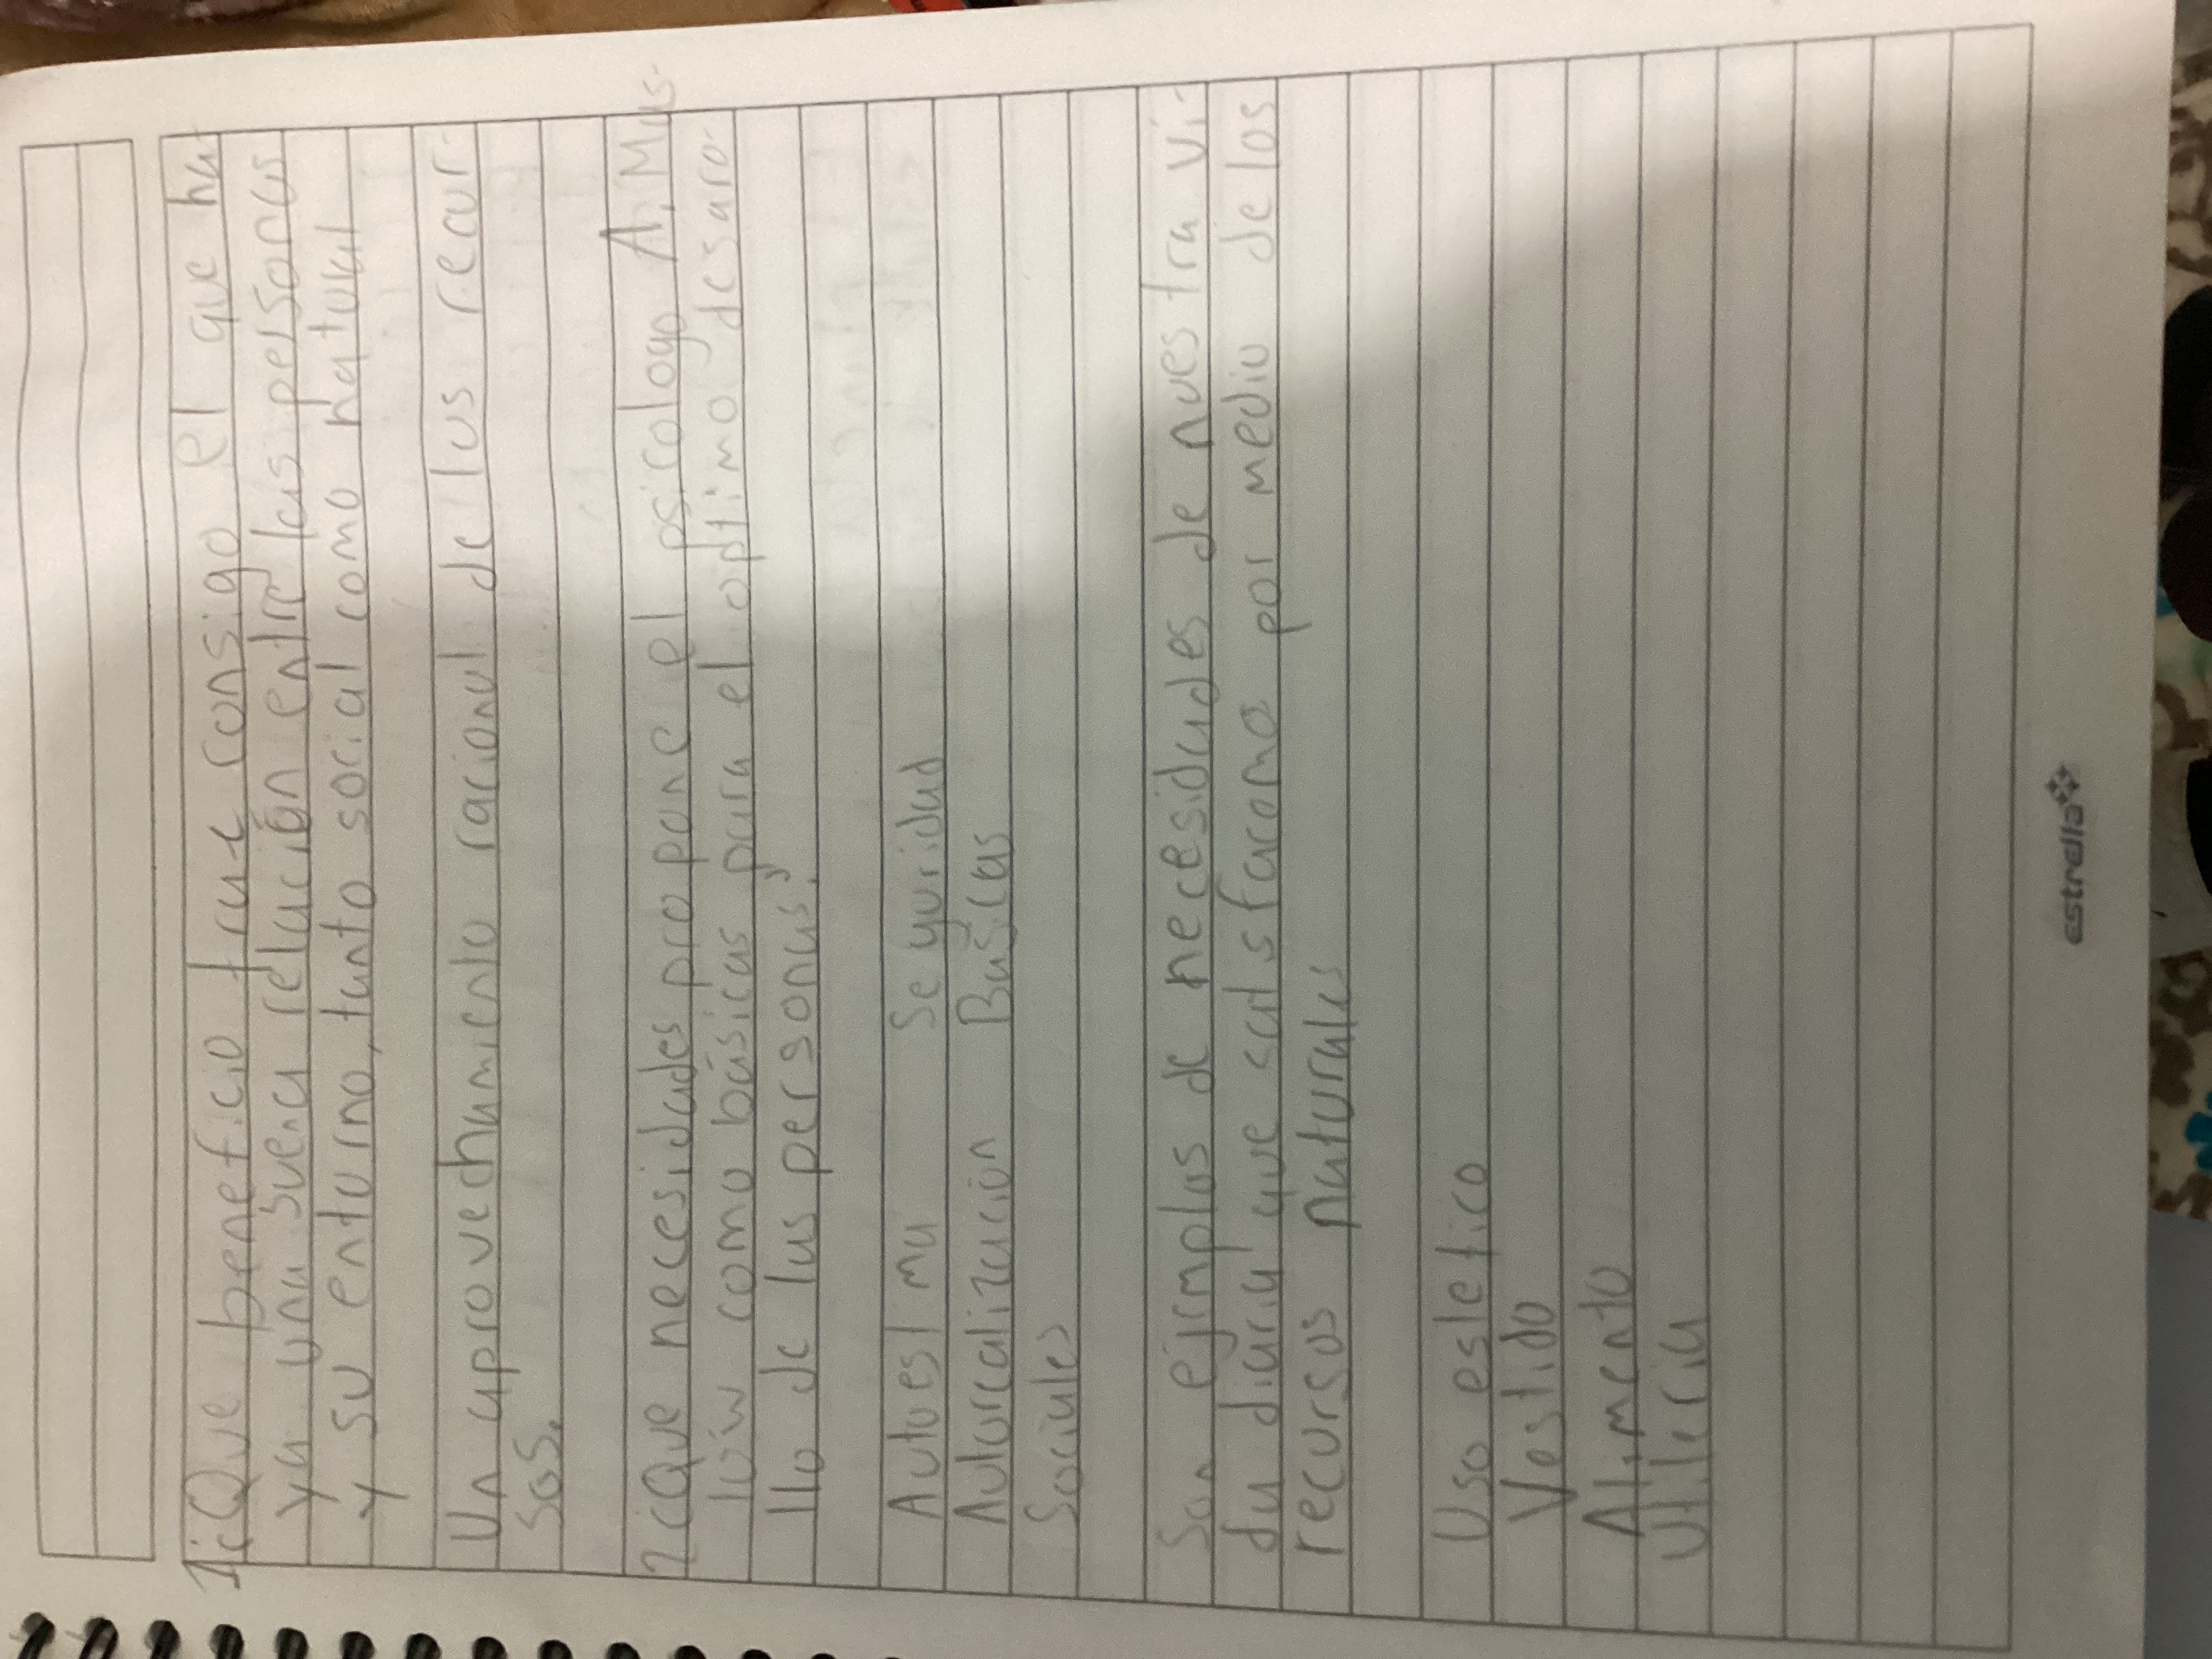 1¿Que beneficio trae consigo el que ha
ya una buena relación entre las personas
y su enturno, tanto social como natural
Un aprovechamiento racional de los recur-
sos.
2¿Que necesidades propone el psicologo A. Mas-
low como básicas para el optimo desaro-
llo de las personas?
Autoestma Seguridad
Autorealizacion Basicas
Sociales
Son ejemplos de necesidades de nuestra vi-
da diaria que satsfacemo por medio de los
recursos naturales
Uso estetico
Vestido
Alimento
Utileria
estrella